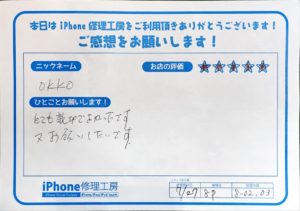 本日は iPhone 修理工房をご利用頂きありがとうございます!
ご感想をお願いします!
ニックネーム
お店の評価
OKKO
ひとことお願いします!
とても親切でよかったです
又お願いしたいです。
iPhone修理工房
7/27
8-02.03